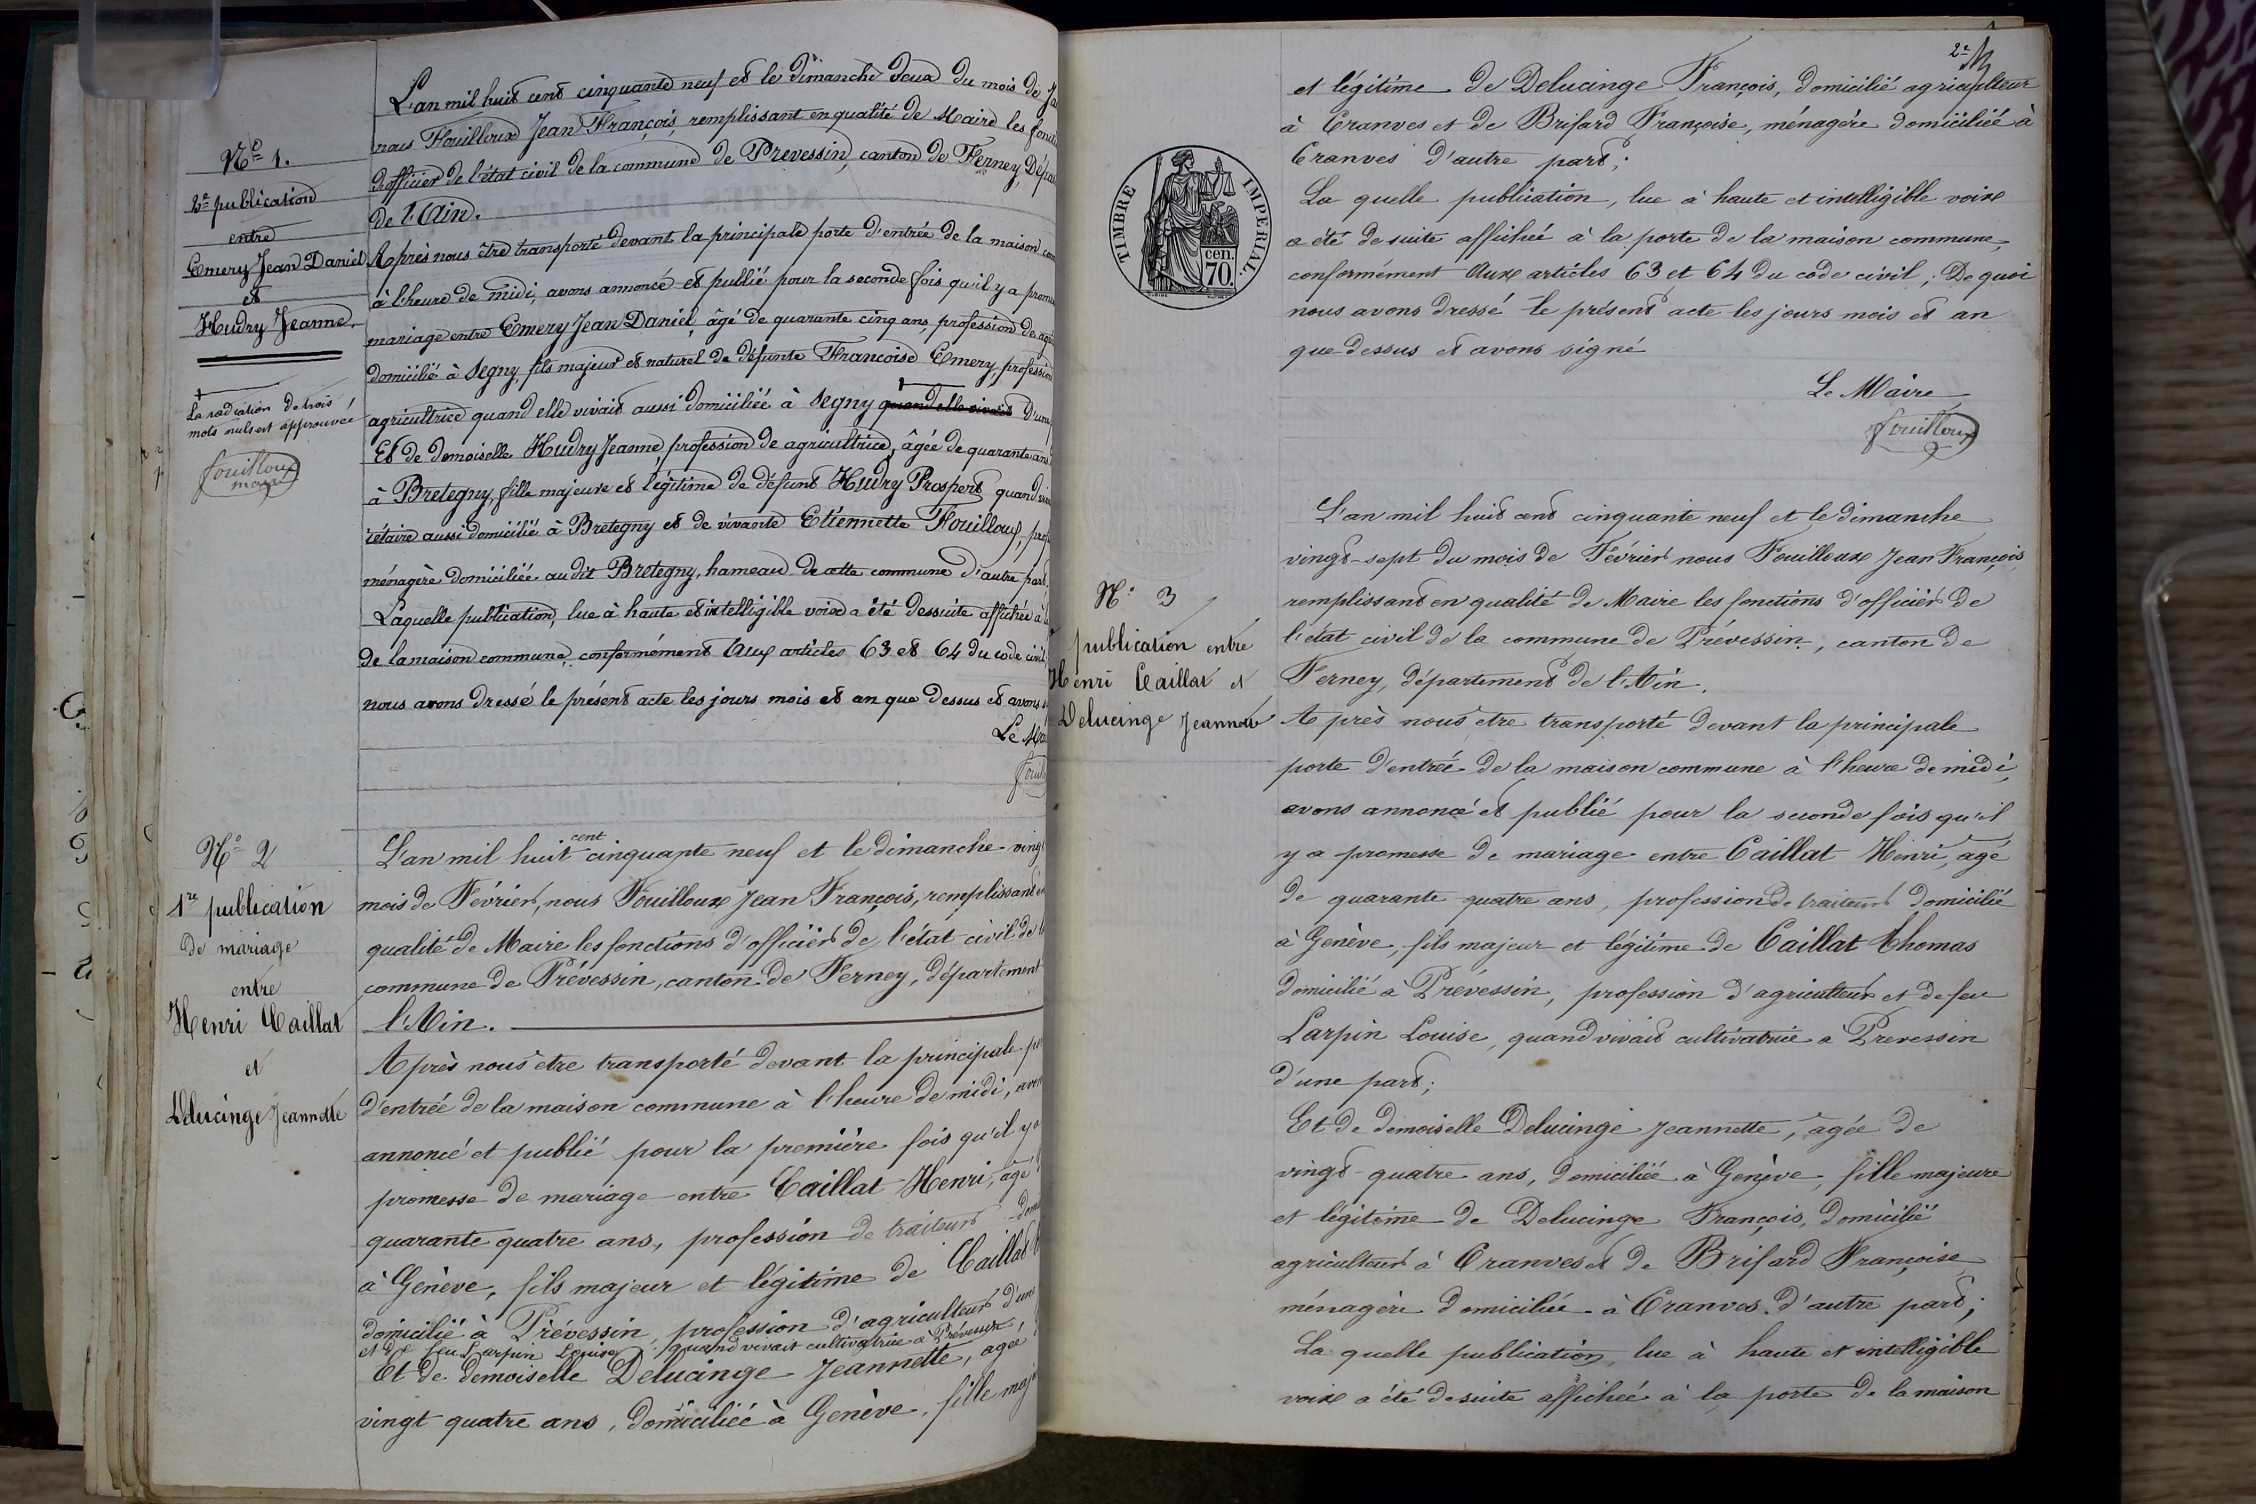 N.o 1.
2e publication
entre
Emery Jean Daniel
et
Hudry Jeanne.
La radiation de trois
mots nuls est approuvée
fouilloux
maire
L'an mil huit cent cinquante neuf et le dimanche deux du mois de Ja
nous Fouilloux Jean François, remplissant en qualité de Maire les foncti
d'officier de l'état civil de la commune de Prevessin, canton de Ferney, Dépar
de l'Ain.
Après nous être transporté devant la principale porte d'entrée de la maison com
à l'heure de midi, avons annoncé et publié pour la seconde fois qu'il y a prome
mariage entre Emery Jean Daniel, âgé de quarante cinq ans, profession de agri
domicilié à Segny, fils majeur et naturel de défunte Francoise Emery, profession
agricultrice quand elle vivait aussi domiciliée à Segny quand elle vivait d'une
Et de demoiselle Hudry Jeanne, profession de agricultrice, âgée de quarante ans
à Bretegny, fille majeure et légitime de défunt Hudry Prospert quand viva
iétaire aussi domicilié à Bretegny et de vivante Etiennette Fouilloux, prof
ménagère domiciliée au dit Bretegny, hameau de cette commune d'autre part.
Laquelle publication, lue à haute et intelligible voix a été dessuite affichée à l
de la maison commune, conformément Aux articles 63 et 64 du code civil
nous avons dressé le présent acte les jours mois et an que dessus et avons s
Le Mai
fouil
N.o 2
1re publication
de mariage
entre
Henri Caillat
et
Delucinge Jeannette
cent
L'an mil huit cinquante neuf et le dimanche vingt
mois de Février, nous Fouilloux Jean François, remplissant en
qualité de Maire les fonctions d'officier de l'état civil de l
commune de Prévessin, canton de Ferney, département
l'Ain.
Après nous etre transporté devant la principale po
d'entrée de la maison commune à l'heure de midi, avon
annoncé et publié pour la première fois qu'il y a
promesse de mariage entre Caillat Henri, âgé
quarante quatre ans, profession de traiteur domi
à Genève, fils majeur et légitime de Caillat
domicilié à Prévessin, profession d'agriculteur d'une
et de feu Larpin Louise, quand vivait cultivatrice a Prévessin
Et de demoiselle Delucinge Jeannette, agée
vingt quatre ans, domiciliée à Genève, fille maj
2e
et légitime de Delucinge François, domicilié agriculteur
à Cranves et de Brifard Françoise, ménagère domiciliée à
Cranves d'autre part;
La quelle publication, lue à haute et intelligible voix
a été de suite affichée à la porte de la maison commune
conformément Aux articles 63 et 64 du code civil; De quoi
nous avons dressé le présent acte les jours mois et an
que dessus et avons signé
Le Maire
fouilloux
TIMBRE IMPERIAL.
cen.
70.
N.o 3
publication entre
Henri Caillat et
Delucinge Jeannette
L'an mil huit cent cinquante neuf et le dimanche
vingt-sept du mois de Février nous Fouilloux Jean François
remplissant en qualité de Maire les fonctions d'officier de
l'état civil de la commune de Prévessin, canton de
Ferney, département de l'Ain.
Après nous etre transporté devant la principale
porte d'entrée de la maison commune à l'heure de midi,
avons annoncé et publié pour la seconde fois qu'il
y a promesse de mariage entre Caillat Henri, agé
de quarante quatre ans, profession de traiteur domicilié
à Genève, fils majeur et légitime de Caillat Thomas
domicilié a Prévessin, profession d'agriculteur et de feu
Larpin Louise, quand vivait cultivatrice a Prevessin
d'une part;
Et de demoiselle Delucinge Jeannette, agée de
vingt-quatre ans, domiciliée à Genève, fille majeure
et légitime de Delucinge François, domicilié
agriculteur à Cranves et de Brifard Françoise
ménagère domiciliée à Cranves d'autre part;
La quelle publication, lue à haute et intelligible
voix a été de suite affichée à la porte de la maison